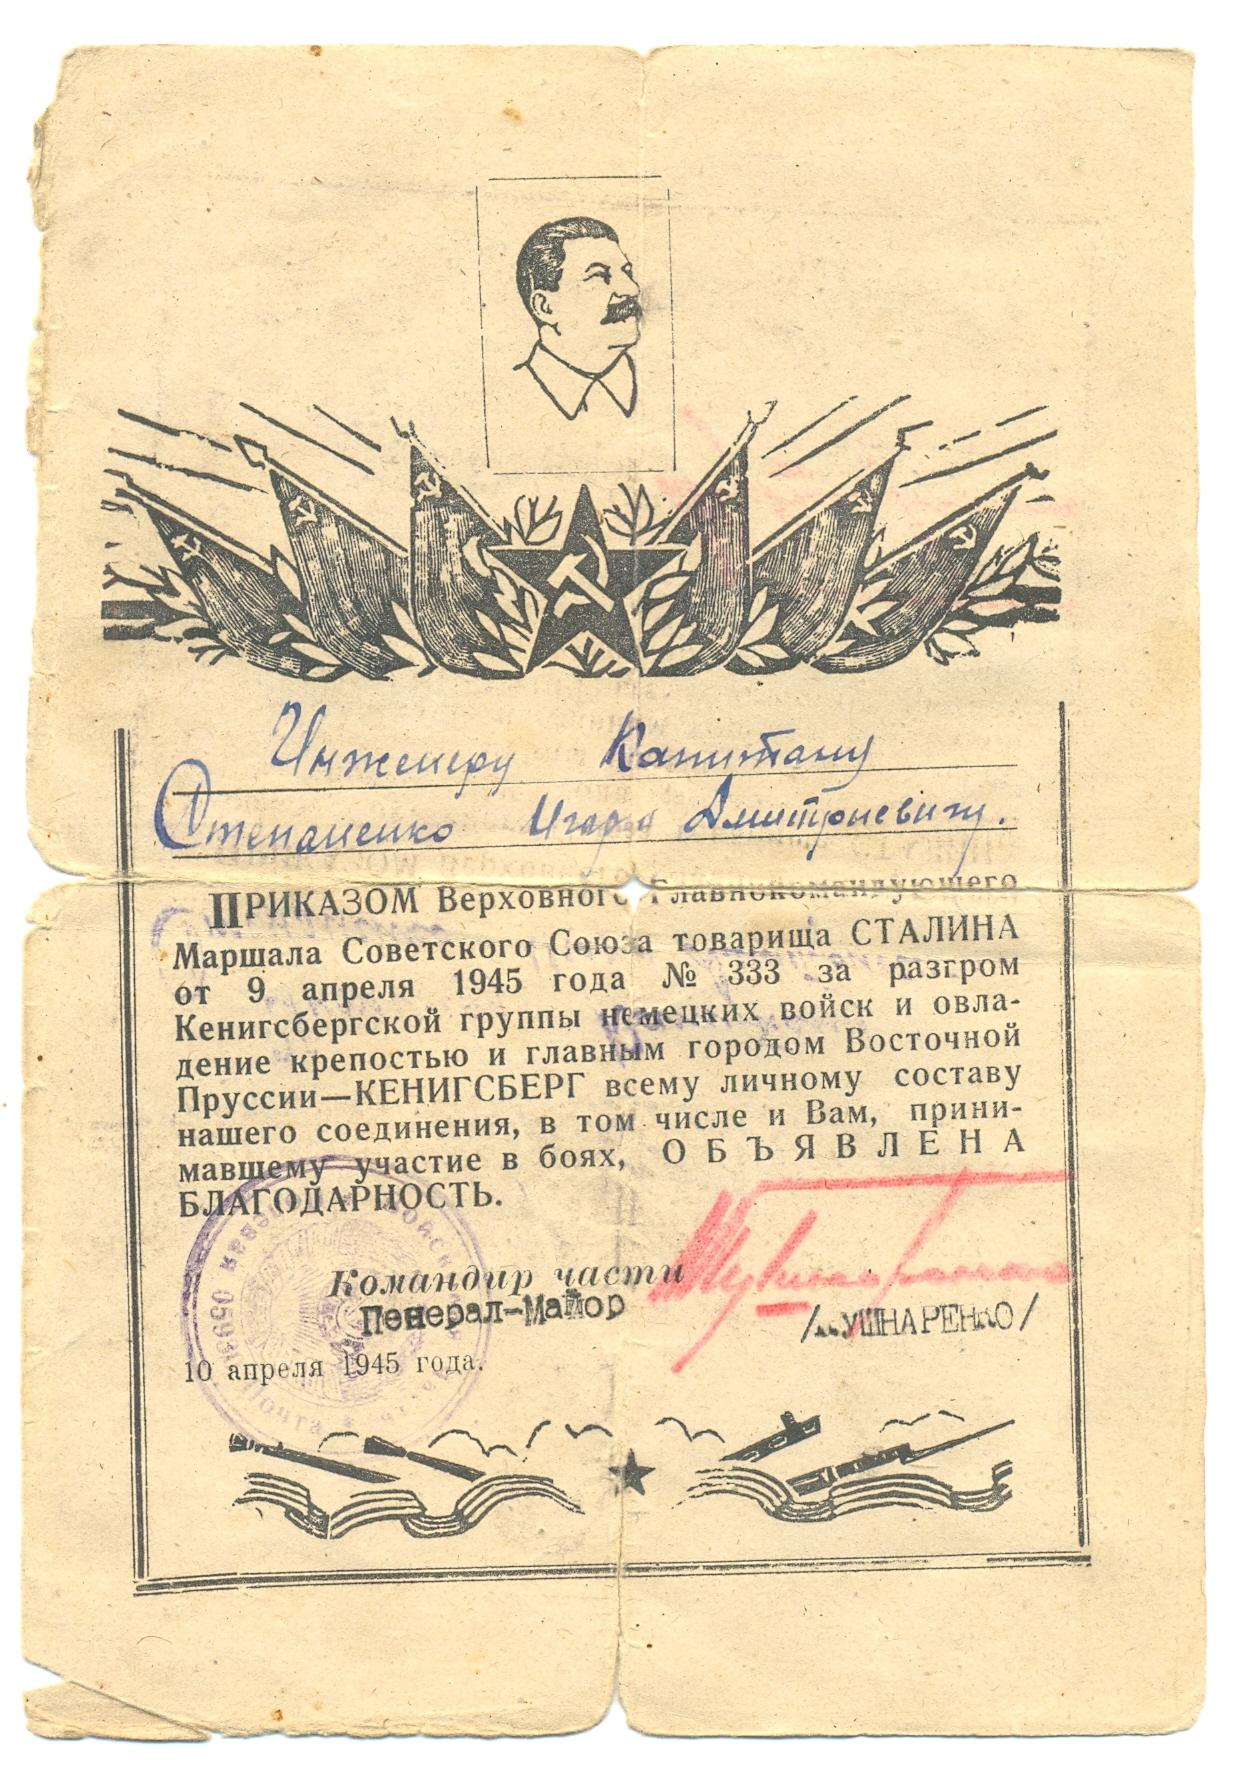 Инженеру Капитану
Степаненко Игорю Дмитриевичу.
ПРИКАЗОМ Верховного Главнокомандующего
Маршала Советского Союза товарища СТАЛИНА
от 9 апреля 1945 года № 333 за разгром
Кенигсбергской группы немецких войск и овла-
дение крепостью и главным городом Восточной
Пруссии—КЕНИГСБЕРГ всему личному составу
нашего соединения, в том числе и Вам, прини-
мавшему участие в боях, ОБЪЯВЛЕНА
БЛАГОДАРНОСТЬ.
Командир части
Генерал-Майор /КУШНАРЕНКО/
10 апреля 1945 года.